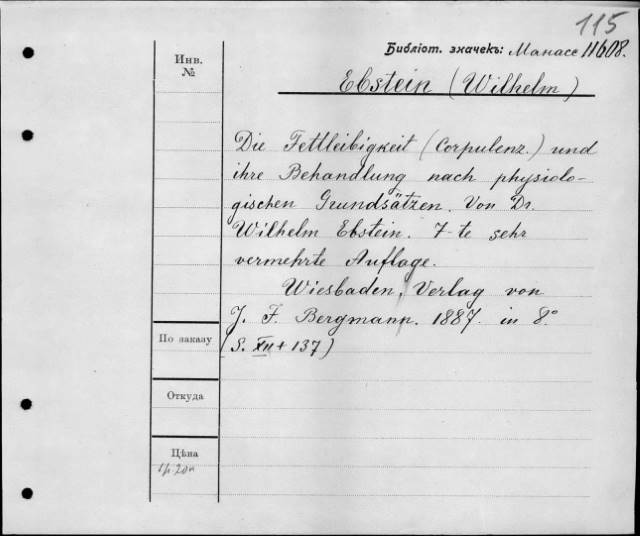 115
Библіот. значекъ: Манасс 11608.
Инв.
№
Ebstein (Wilhelm)
Die Fettleibigkeit (Corpulenz.) und
ihre Behandlung nach physiolo-
gischen Grundsätzen. Von Dr.
Wilhelm Ebstein. 7-te sehr
vermehrte Auflage.
Wiesbaden, Verlag von
J. F. Bergmann. 1887. in 8.°
(S. XII + 137)
По заказу
Откуда
Цѣна